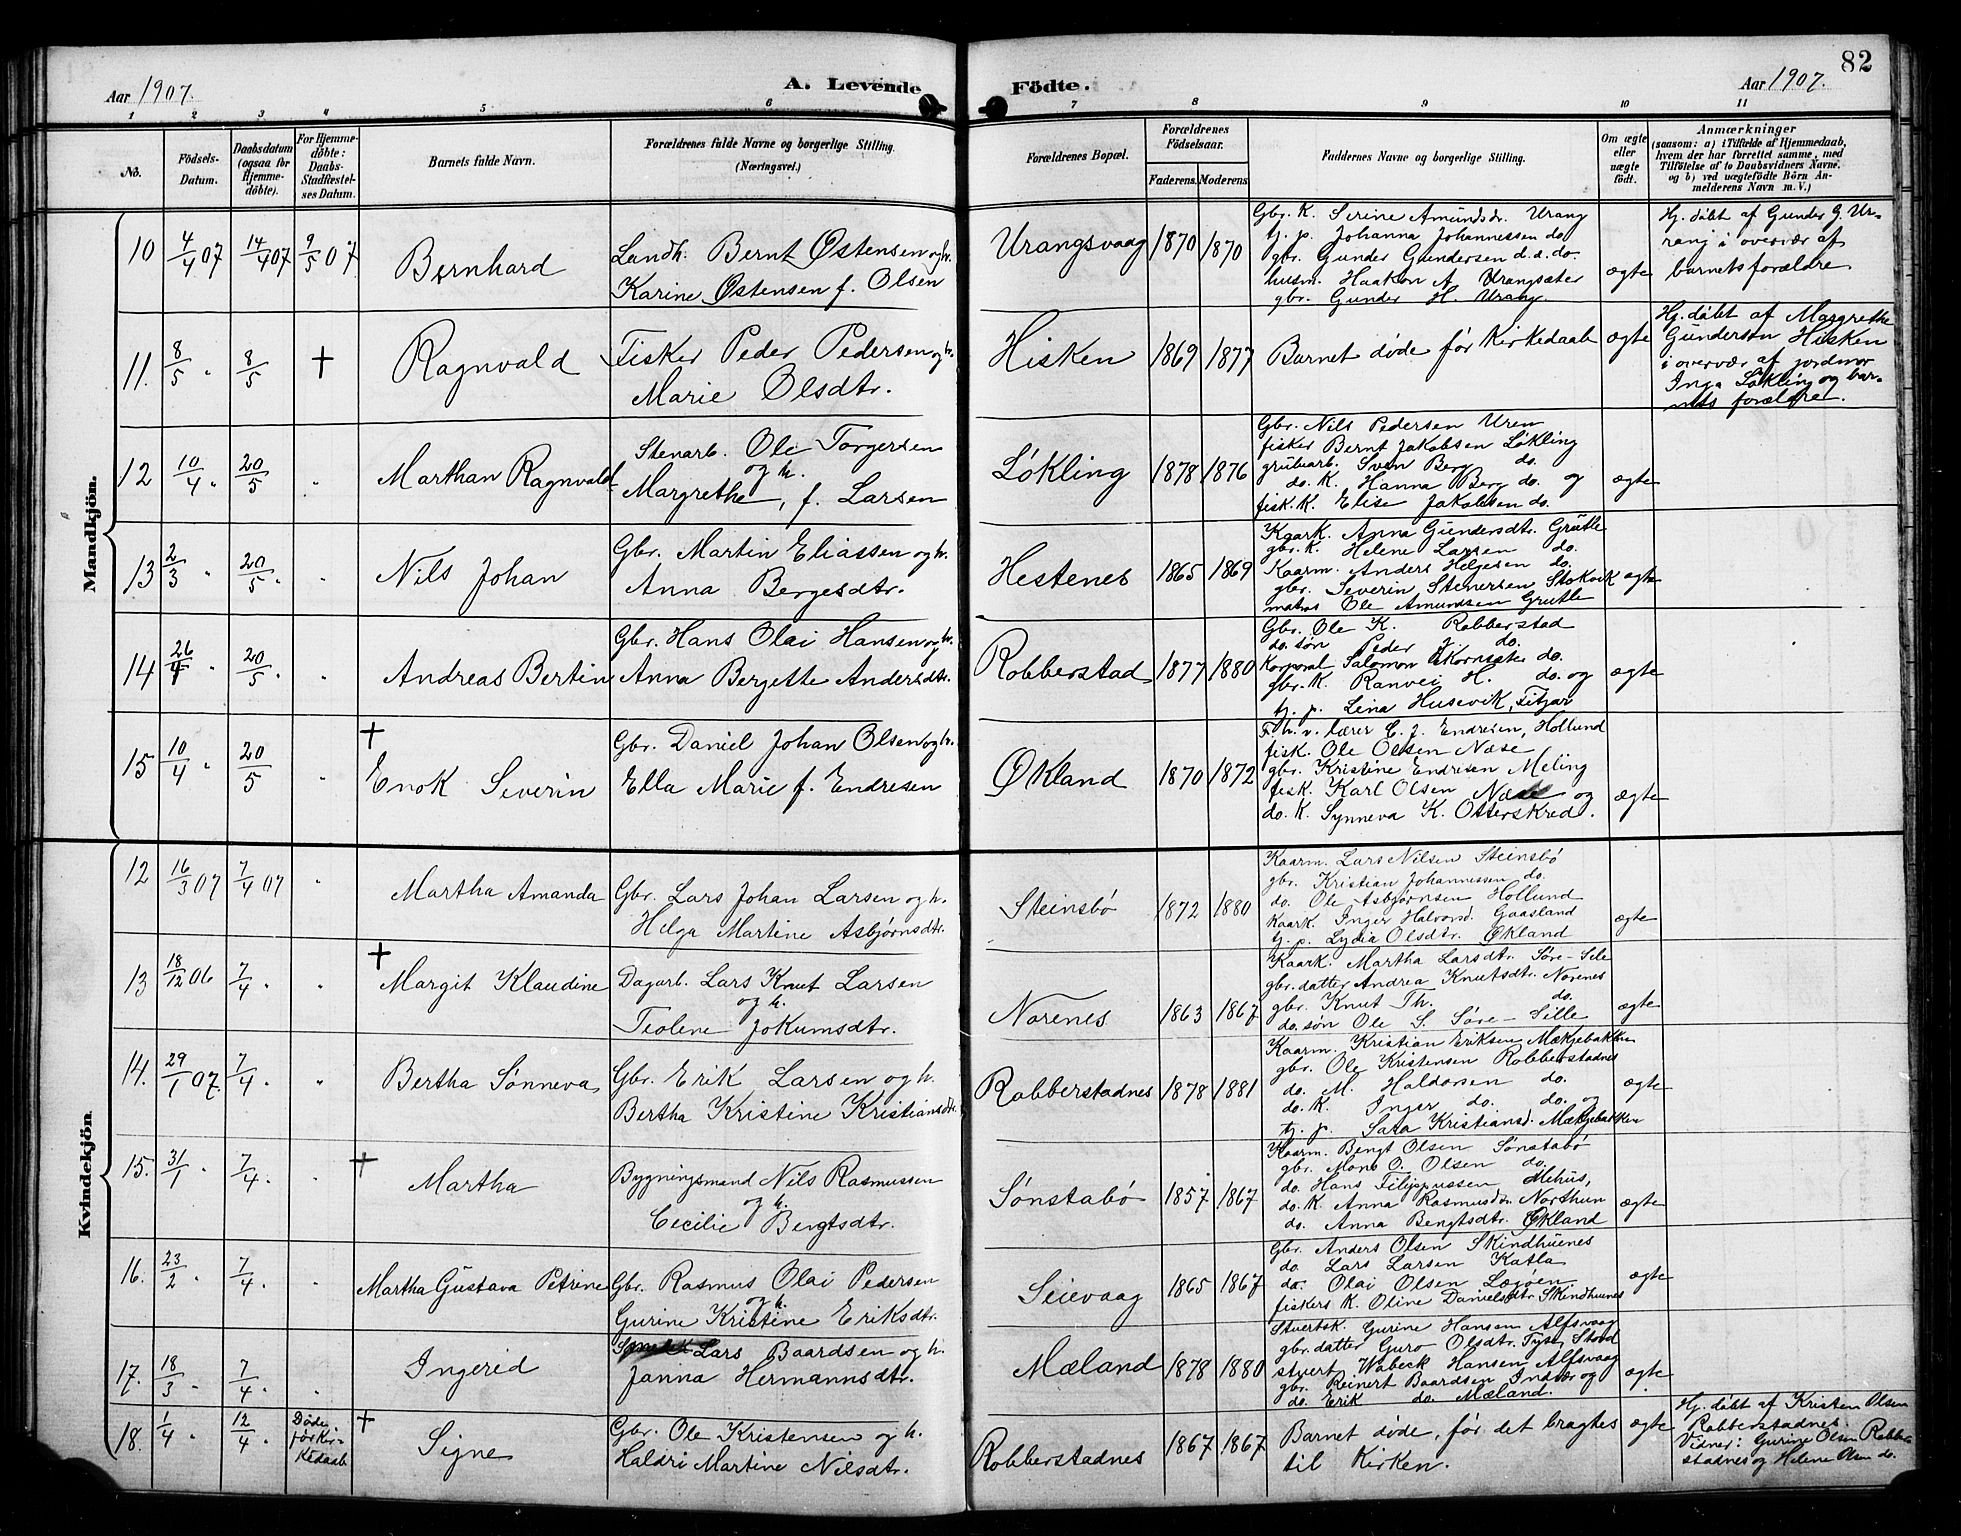 82
Aar 1907.
A. Levende Födte.
Aar 1907.
1 2 3 4 5 6 7 8 9 10 11
No.
Födsels-
Datum.
Daabsdatum
(ogsaa for
Hjemme-
döbte).
For Hjemme-
döbte:
Daabs-
Stadfæstel-
ses Datum.
Barnets fulde Navn.
Forældrenes fulde Navne og borgerlige Stilling.
(Næringsvei.)
Forældrenes Bopæl.
Forældrenes
Födselsaar.
Faderens. Moderens
Faddernes Navne og borgerlige Stilling.
Om ægte
eller
uægte
födt.
Anmærkninger
(saasom: a) i Tilfælde af Hjemmedaab,
hvem der har forrettet samme, med
Tilföielse af to Daabsvidners Navne,
og b) ved uægtefödte Börn An-
melderens Navn m. V.)
Mandkjön.
10 4/4 07 14/4 07 9/5 07
Bernhard
Landh. Bernt Østensen og h.
Karine Østensen f. Olsen
Urangsvaag 1870 1870
Gbr. K. Serine Amundsdr. Urang
tj. p. Johanna Johannessen do
gbr. Gunder Gundersen d. æ. do.
husm. Haakon A Urangsæter
gbr. Gunder H. Urang
ægte
Hj. døbt af Gunder G. Ur-
rang i overvær af
barnets forældre
11. 8/5 " 8/5 †
Ragnvald
Fisker Peder Pedersen og h.
Marie Olsdtr.
Hisken 1869 1877
Barnet døde før Kirkedaab
ægte
Hj. døbt af Margrethe
Gunderson Hisken
i overvær af jordmor
Inga Løkling og bar-
nets forældre.
12 10/4 " 20/5 "
Marthan Ragnvald
Stenarb. Ole Torgersen
og h.
Margrethe, f. Larsen
Løkling 1878 1876
Gbr. Nils Pedersen Uren
fisker Bernt Jakobsen Løkling
grubearb. Sven Berg do.
do. K. Hanna Berg do. og
fisk. K. Elise Jakobsen do.
ægte
13 2/3 " 20/5 . "
Nils Johan
Gbr. Martin Eliassen og h.
Anna Bergesdtr.
Hestenes 1865 1869
Kaark. Anna Gundersdtr. Grutle
gbr. K. Helene Larsen do.
Kaarm. Anders Helgesen do.
gbr. Severin Stenersen Stokvik
matros Ole Amundsen Grutle
ægte
14 26/4 " 20/5 . "
Andreas Bertin
Gbr. Hans Olai Hansen og h.
Anna Bergette Andersdtr.
Robberstad 1877 1880
Gbr. Ole K. Robberstad
do. søn Peder J. do.
Korporal Salomon Skornsæter do.
gbr. K. Ranvei H. do. og
tj. p. Lina Husevik, Fitjar
ægte
15 10/4 " 20/5 "
† Enok Severin
Gbr. Daniel Johan Olsen og h.
Ella Marie f. Endresen
Økland 1870 1872
F. h. v. lærer E. J. Endresen, Hollund
fisk. Ole Olsen Næse
gbr. Kristine Endresen Meling
fisk. Karl Olsen Næse og
do. K. Synneva K. Otterskred.
ægte
Kvindekjön.
12 16/3 07 7/4 07 "
Martha Amanda
Gbr. Lars Johan Larsen og h.
Helga Martine Asbjørnsdtr.
Steinsbø 1872 1880
Kaarm. Lars Nilsen Steinsbø
gbr. Kristian Johannessen do.
do. Ole Asbjørnsen Hollund
Kaark. Inger Halvorsd. Gaasland
tj. p. Lydia Olsdtr. Økland
ægte
13 18/12 06 7/4 . "
† Margit Klaudine
Dagarb. Lars Knut Larsen
og h.
Teoline Jokumsdtr.
Norenes 1863 1867
Kaark. Martha Larsdtr. Søre-Sele
gbr. datter Andrea Knutsdtr. Norenes
gbr. Knut Th. do.
do. søn Ole S. Søre-Sille
ægte
14. 29/1 07. 7/4 . "
Bertha Sønneva
Gbr. Erik Larsen og h.
Bertha Kristine Kristiansdtr.
Robberstadnes 1878 1881
Kaarm. Kristian Eriksen Mækjebakken
gbr. Ole Kristensen Robberstadnes
do. M. Haldorsen do.
do. K. Inger do. do. og
tj. p. Sara Kristiansd. Mækjebakken
ægte
15. 31/1 " 7/4 . "
† Martha
Bygningsmand Nils Rasmussen
og h.
Cecilie Bengtsdtr.
Sønstabø 1857 1867
Kaarm. Bengt Olsen Sønstabø
gbr. Mons O. Olsen do.
do. Hans Filippussen Mehus,
do. K. Anna Rasmusdtr. Northun
do. Anna Bengtsdtr. Økland
ægte
16. 23/2 . 7/4 . "
Martha Gustava Petrine
Gbr. Rasmus Olai Pedersen
og h.
Gurine Kristine Eriksdtr.
Seievaag 1865 1867
Gbr. Anders Olsen Skindhuenes
do Lars Larsen Katla
do. Olai Olsen Lagøen
fiskers K. Oline Danielsdtr. Skindhuenes
ægte
17. 18/3 . 7/4 . "
Ingerid
Lars Baardsen og h.
Janna Hermannsdtr.
Mæland 1878 1880
Stuertsk. Gurine Hansen Alfsvaag
gbr. datter Guro Olsdtr. Tyse, Stord
stuert Wabeck Hansen Alfsvaag
gbr. Reinert Baardsen Indvær og
do. Erik do. Mæland.
ægte
18. 1/4 " 12/4 .
Døde
før Kir-
kedaab
† Signe
Gbr. Ole Kristensen og h.
Haldri Martine Nilsdtr.
Robberstadnes 1867 1867
Barnet døde, før det bragtes
til Kirken.
ægte
Hj. døbt af Kristen Olsen
Robberstadnes.
Vidner: Gurine Olsen Robber-
stadnes og Helene Olsen do.